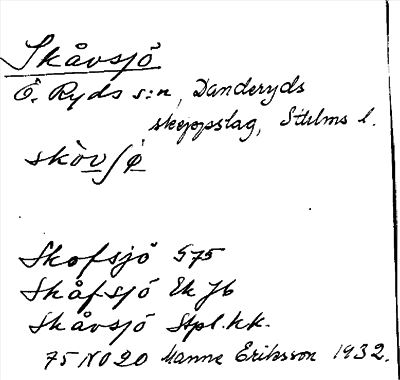 Skåvsjö
Ö. Ryds s:n, Danderyds
skeppslag, Sthlms l.
skòvʃö̀
Skofsjö G75
Skåfsjö Ek Jb
Skåvsjö Stpl.kk.
75 NO 20 Manne Eriksson 1932.